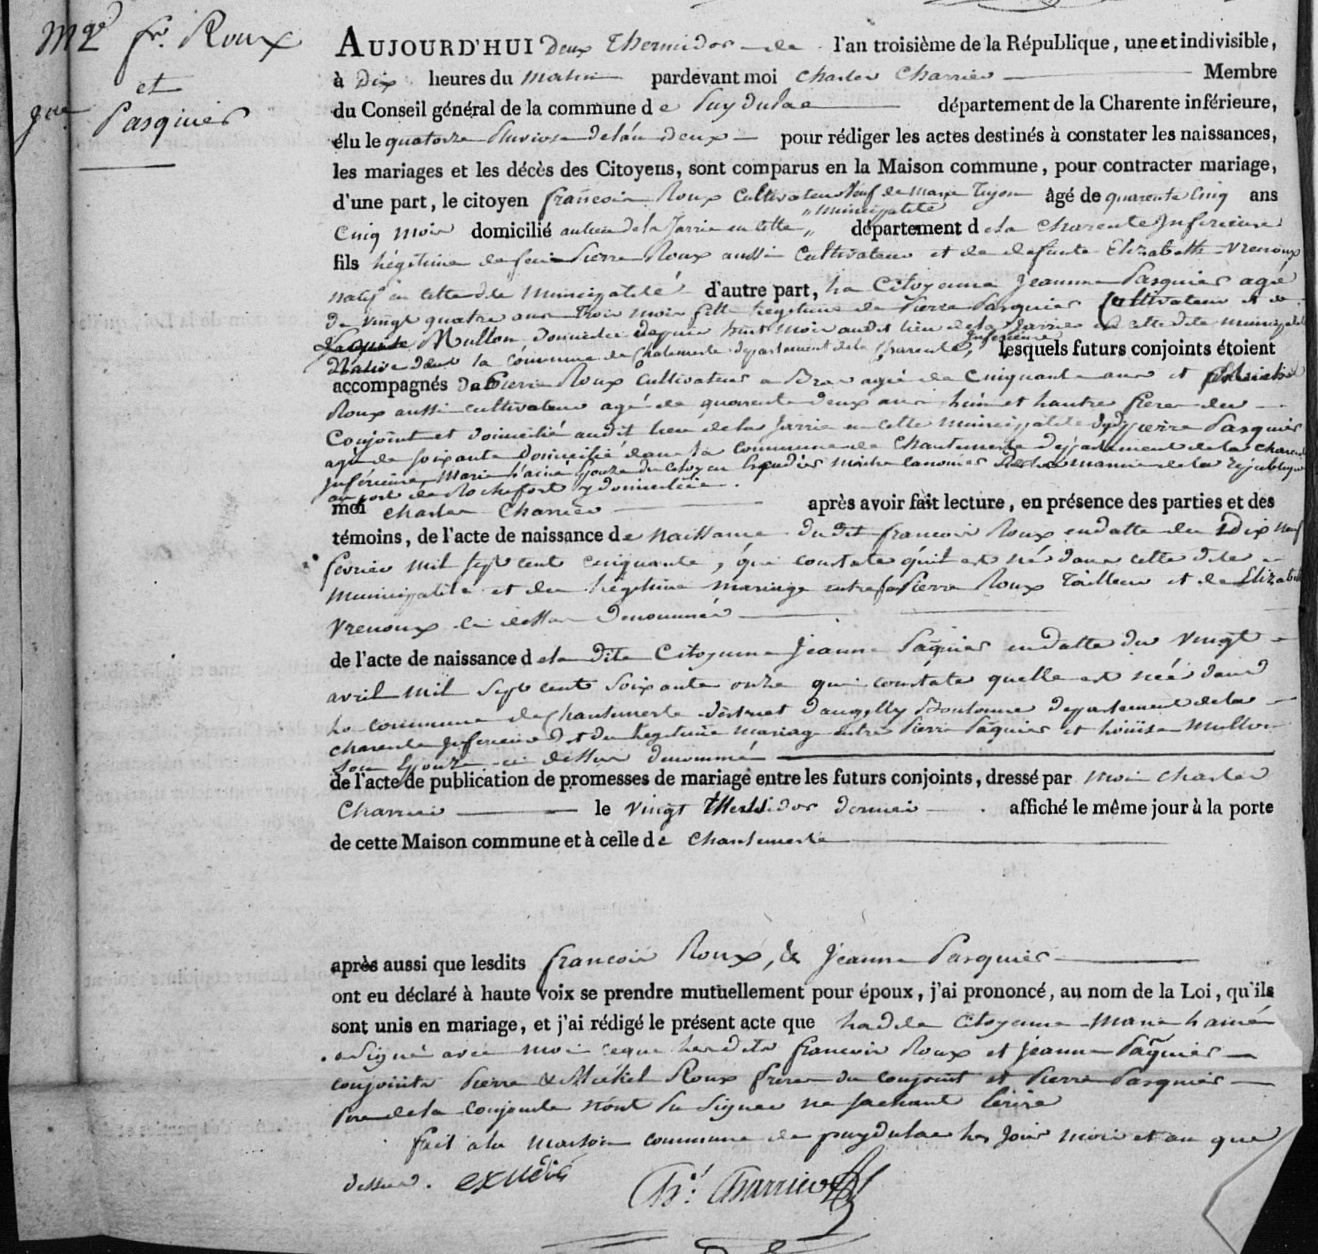 Mge fr. Roux
et
jne Pasquier
AUJOURD'HUI Deux Thermidor de l'an troisième de la République, une et indivisible,
à Dix heures du Matin pardevant moi Charles Charrier Membre
du Conseil général de la commune de Puydulac département de la Charente inférieure,
élu le quatorze Pluviose de l'an deux pour rédiger les actes destinés à constater les naissances,
les mariages et les décès des Citoyens, sont comparus en la Maison commune, pour contracter mariage,
d'une part, le citoyen François Roux Cultivateur Veuf de Marie âgé de quarente Cinq ans
Cinq mois domicilié au lieu de la Jarrie en cette municipalité département de la Charente Inférieure
fils légitime de feu Pierre Roux aussi Cultivateur et de defunte Elizabeth Vrenoux
natif en cette dite Municipalité d'autre part, la Citoyenne Jeanne Pasquier agé
de vingt quatre ans trois mois fille legitime de Pierre Pasquier Cultivateur et de
Mullon, domiciliée depuis huit mois audit lieu de la Jarrie en cette dite municipalité
Native dans la commune de Chantemerle département de la Charente Inférieure, lesquels futurs conjoints étoient
accompagnés de Pierre Roux Cultivateur a agé de Cinquante ans et
Roux aussi cultivateur agé de quarente deux ans, l'un et l'autre frere du
Conjoint et domicilié audit lieu de la Jarrie en cette municipalité Pierre Pasquier
agé de soixante domicilié dans la commune de Chantemerle département de la Charente
Inférieure, Marie hainé Epouze du Citoyen canonier de la marine de la République
au port de Rochefort y domiciliée.
moi Charles Charrier après avoir fait lecture, en présence des parties et des
témoins, de l'acte de naissance de naissance dudit francois Roux en datte du Dix neuf
fevrier mil sept cent cinquante, que constate qu'il est né dans cette dite
municipalité et du légitime mariage entre Pierre Roux Tailleur et de Elizabeth
Vrenoux ci dessus denommé
de l'acte de naissance de la dite Citoyenne Jeanne Paquier en datte du vingt
avril mil sept cent soixante onze qui constate quelle est née dans
la commune de Chantemerle district d'angelly Boutonne departement de la
charente Inferieure et du légitime mariage entre Pierre Paquier et Mullon
son Epouze ci dessus denommé
de l'acte de publication de promesses de mariage entre les futurs conjoints, dressé par moi Charles
Charrier le vingt dernier affiché le même jour à la porte
de cette Maison commune et à celle de Chantemerle
après aussi que lesdits francois Roux, & Jeanne Pasquier
ont eu déclaré à haute voix se prendre mutuellement pour époux, j'ai prononcé, au nom de la Loi, qu'ils
sont unis en mariage, et j'ai rédigé le présent acte que ladite Citoyenne Marie hainé
a Signé avec moi ceque lesdits francois Roux et Jeanne Paquier
conjoints Pierre & Mickel Roux freres du conjoint et Pierre Pasquier
Pere de la conjointe n'ont su signer ne sachant Ecrire
fait a la maison commune de puydulac les Jour mois et an que
dessus.
Chs. Charrier